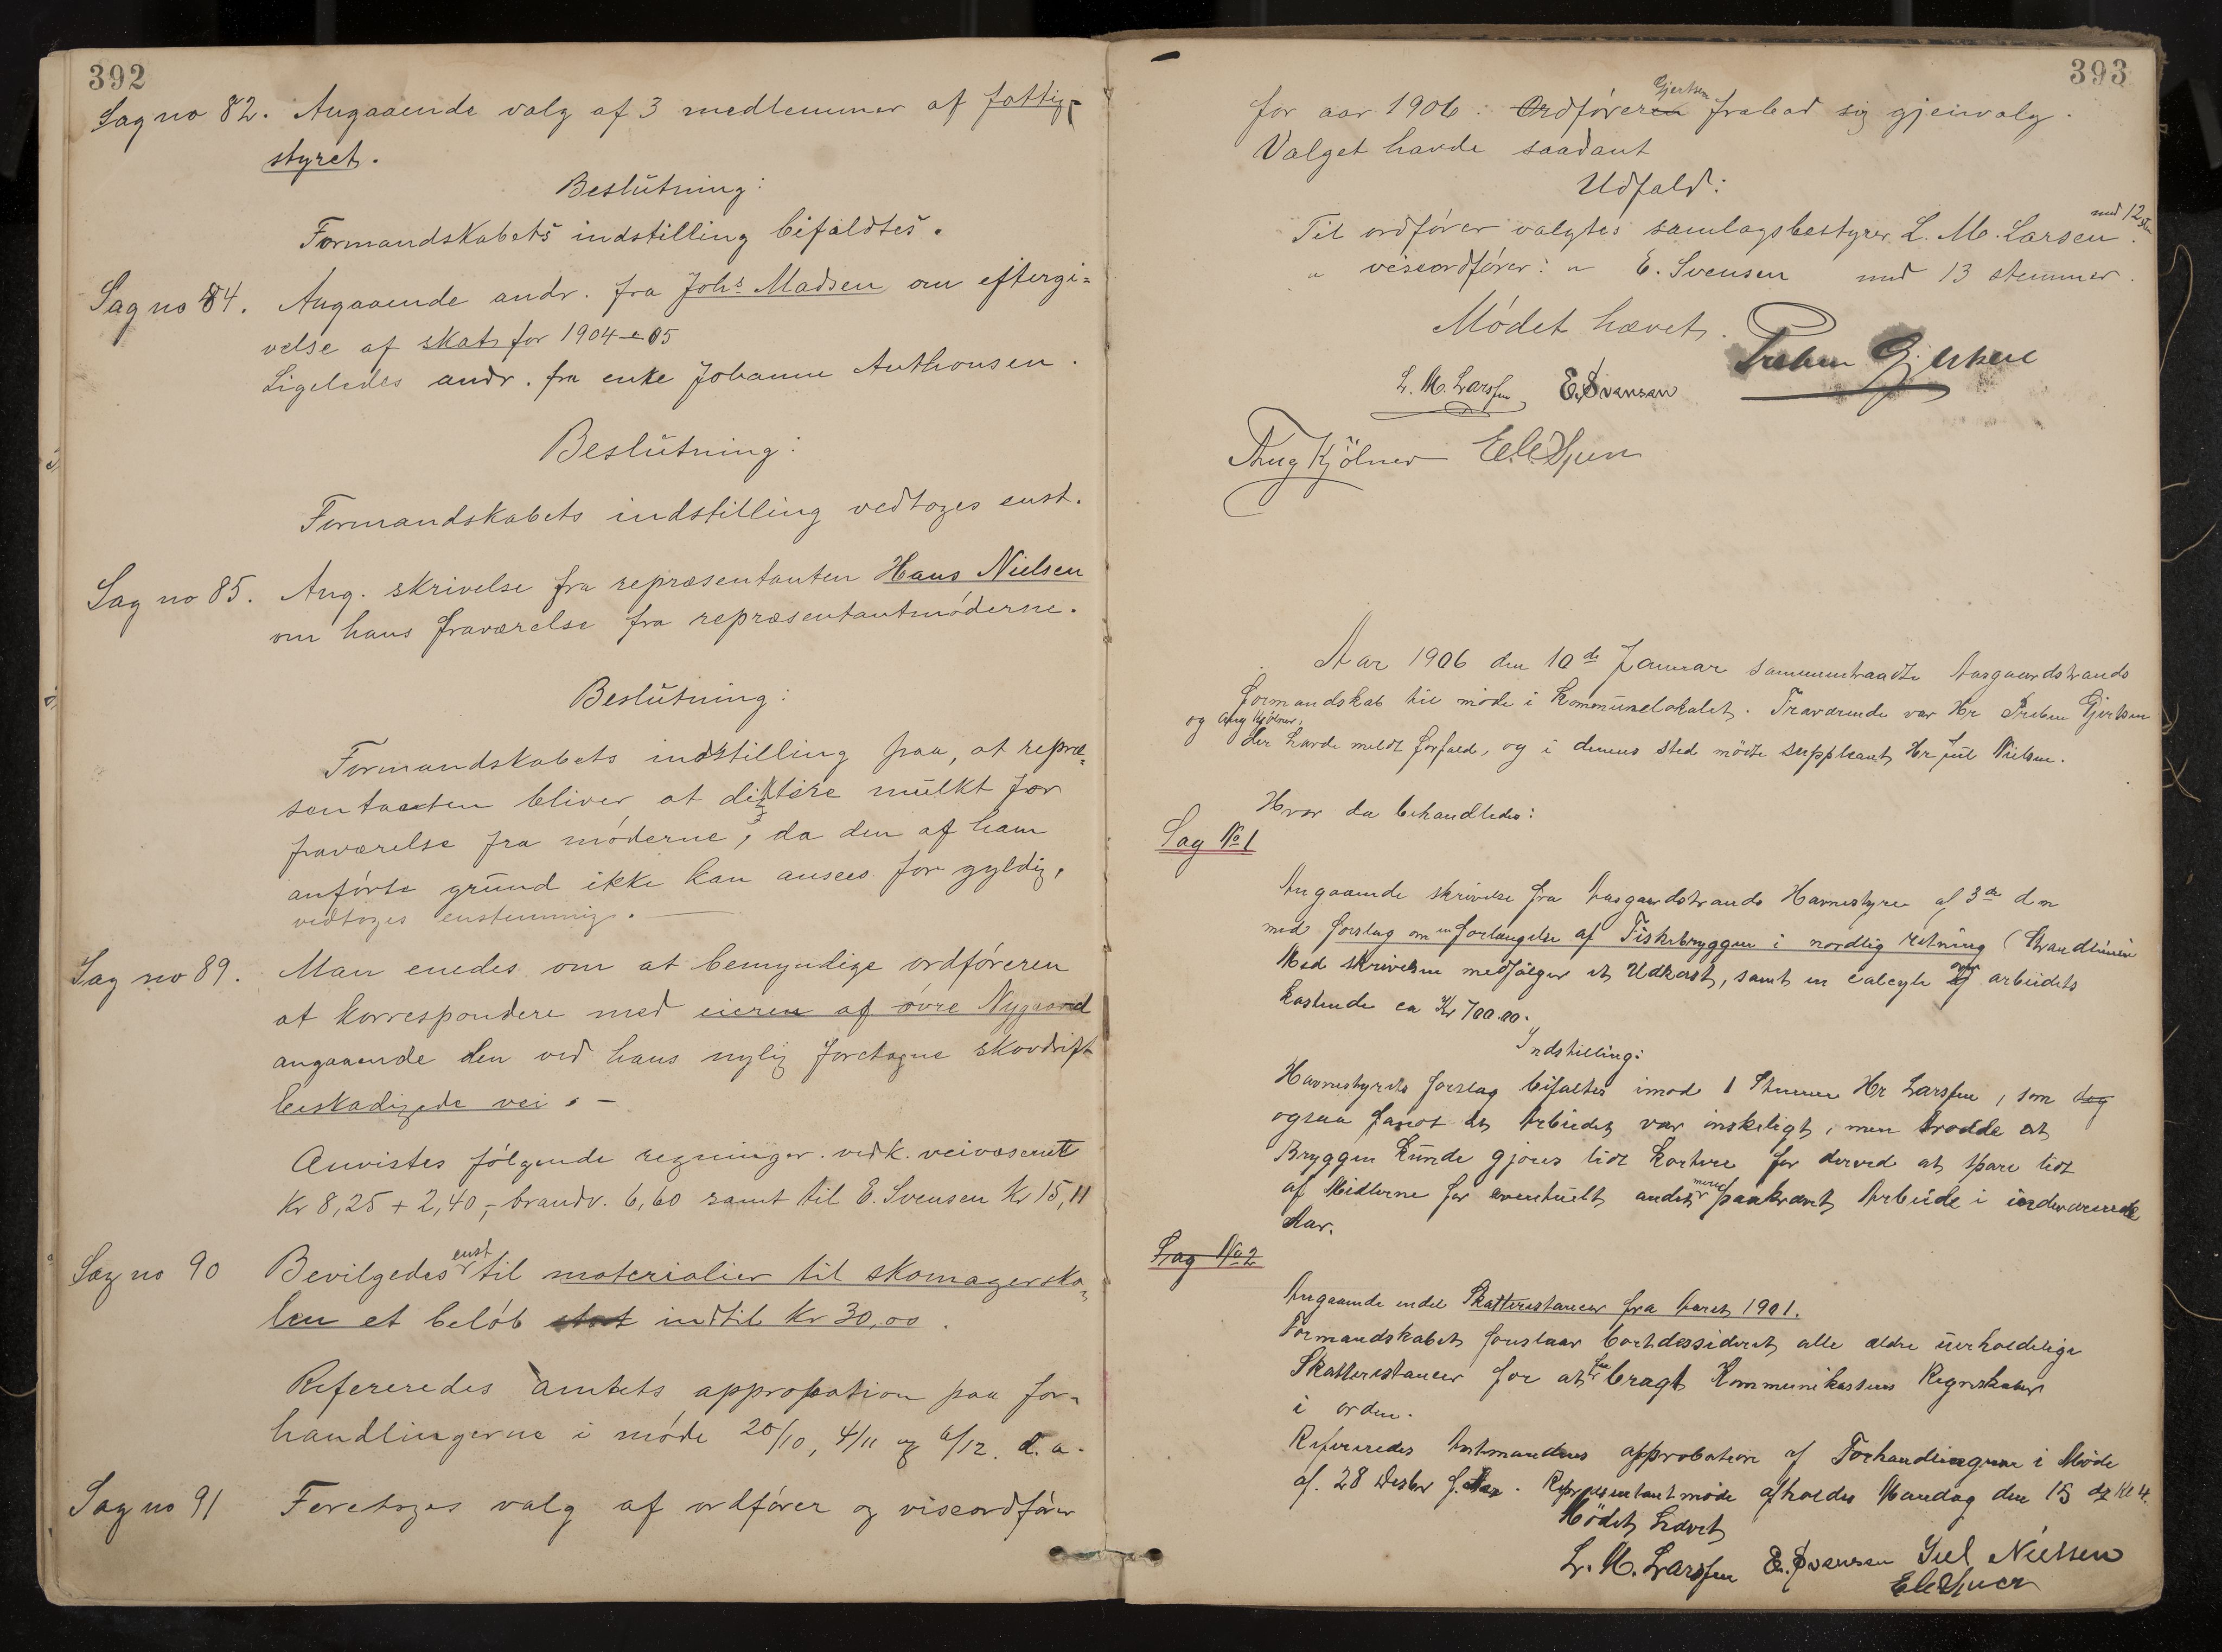 392
Sag no 82. Angaaende valg af 3 medlemmer af fattig-
styret.
Beslutning:
Formandskabets indstilling bifaldtes.
Sag no 84. Angaaende andr. fra Johs Madsen om eftergi=
velse af skat for 1904-05
Ligeledes andr. fra enke Johanne Anthonsen.
Beslutning:
Formandskabets indstilling vedtoges enst.
Sag no 85. Ang. skrivelse fra repræsentanten Hans Nielsen
om hans fraværelse fra repræsentantmøderne.
Beslutning:
Formandskabets indstilling paa, at repræ=
sentanten bliver at diktere mulkt for
fraværelse fra møderne, da den af ham
anførte grund ikke kan ansees for gyldig,
vedtoges enstemmig.
Sag no 89. Man enedes om at bemyndige ordføreren
at korrespondere med eieren af øvre Nygaard
angaaende den ved hans nylig foretagne skovdrift
beskadigede vei. -
Anvistes følgende regninger. vedk. veivæsenet
Kr 8,25 + 2,40,- brandv. 6,60 samt til E. Svensen Kr 15,11
Sag no 90 Bevilgedes enst til materialier til skomagersko=
len et beløb stort indtil kr 30,00.
Refereredes amtets approbation paa for-
handlingerne i møde 20/10, 4/11 og 6/12. d. a.
Sag no 91 Foretoges valg af ordfører og viseordfører
393
for aar 1906: Ordføreren Gjertsen frabad sig gjenvalg.
Valget havde saadant
Udfald:
Til ordfører valgtes samlagsbestyrer L. M. Larsen med 12 stm.
" viseordfører: " E. Svensen med 13 stemmer.
Mødet hævet.
Preben Gjertsen
L. M. Larssen E. Svensen
Aug Kjølner
Aar 1906 den 10de Januar sammentraadte Aasgaardstrands
formandskab til møde i Kommunelokalet. Fraværende var Hr Preben Gjertsen
og Aug Kjølner,
der havde meldt forfald, og i dennes sted mødte suppleant Hr Jul Nielsen.
Hvor da behandledes:
Sag No 1
Angaaende skrivelse fra Aasgaardstrands Havnestyre af 3de dn
med forslag om en forlængelse af Fiskebryggen i nordlig retning (Strandlinien
Med skrivelsen medfølger et Udkast, samt en calcyle over arbeidets
Kostende ca Kr 700.00.
Indstilling:
Havnestyrets forslag bifaltes imod 1 Stemme Hr Larssen, som tog
ogsaa fandt at Arbeidet var ønskeligt, men trodde at
Bryggen kunde gjøres lidt kortere for derved at spare lidt
af Midlerne for eventuelt andet mere paakrævet Arbeide i indeværende
Aar.
Sag No 2
Angaaende endel Skatterestancer fra Aaret 1901.
Formandskabet foreslaar bortdessideret alle ældre uerholdelige
Skatterestancer for at faa bragt Kommunekassens Regnskaber
i orden.
Refereredes Amtmandens approbation af Forhandlingerne i Møde
af. 28 Desbr f. Aar. Representantmøde afholdes Mandag den 15 ds Kl 4.
Mødet hævet
L. M. Larssen E. Svensen Jul Nielsen